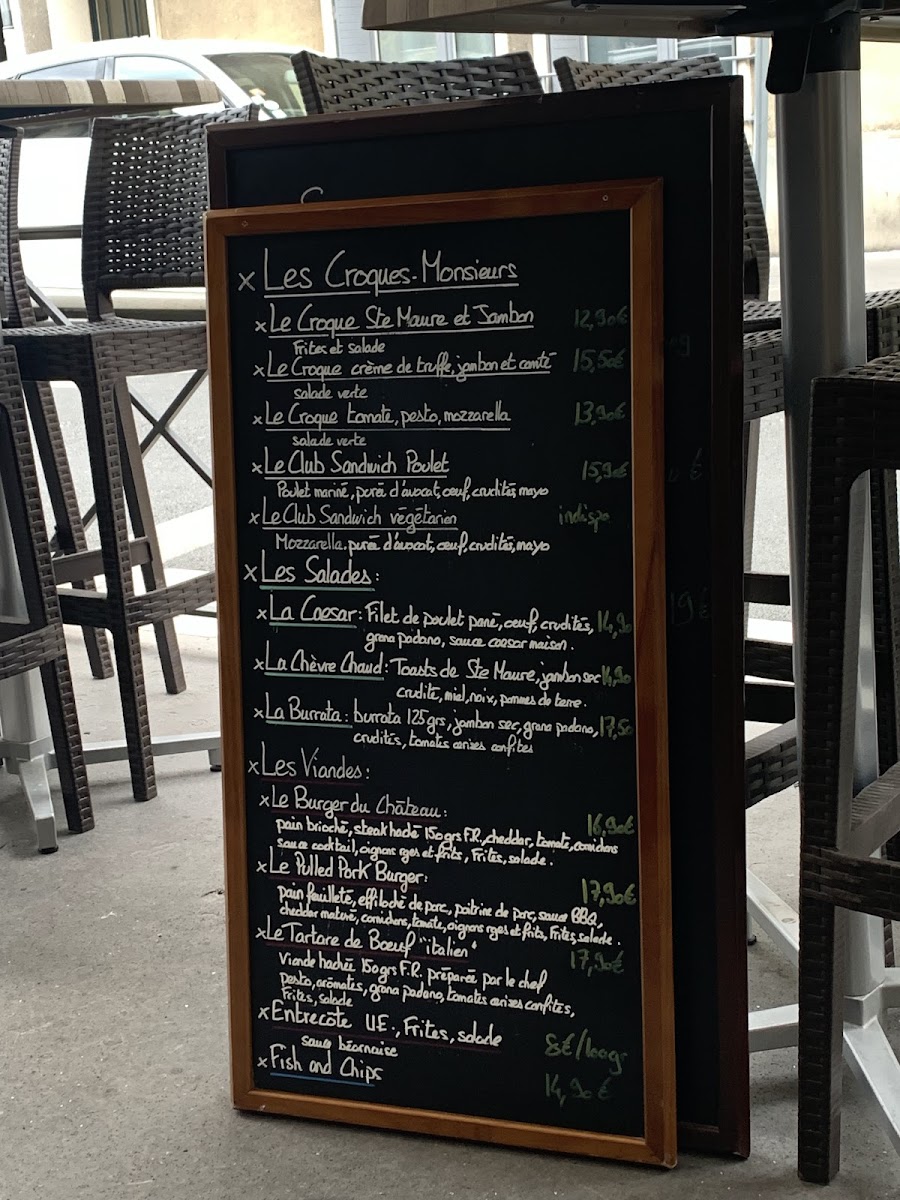 x Les Croques-Monsieurs
x Le Croque Ste Maure et Jambon 12,90€
Frites et salade
x Le Croque crème de truffe, jambon et comté 15,50€
salade verte
x Le Croque tomate, pesto, mozzarella 13,90€
salade verte
x Le Club Sandwich Poulet 15,90€
Poulet mariné, purée d'avocat, oeuf, crudités, mayo
x Le Club Sandwich végétarien indispo
Mozzarella, purée d'avocat, oeuf, crudités, mayo
x Les Salades:
x La Caesar: Filet de poulet pané, oeuf, crudités, 14,90
grana padano, sauce caesar maison.
x La Chèvre Chaud: Toasts de Ste Maure, jambon sec 14,90
crudité, miel, noix, pommes de terre.
x La Burrata: burrata 125grs, jambon sec, grana padano, 17,50
crudités, tomates cerises confites
x Les Viandes:
x Le Burger du Château: 16,90€
pain brioché, steak haché 150grs F.R, cheddar, tomate, cornichons
sauce cocktail, oignons rges et frits, Frites, salade.
x Le Pulled Pork Burger: 17,90€
pain feuilleté, effiloché de porc, poitrine de porc, sauce BBQ,
cheddar maturé, cornichons, tomate, oignons rges et frits, Frites, salade.
x Le Tartare de Bœuf "italien" 17,90€
Viande hachée 150grs F.R, préparée par le chef
pesto, arômates, grana padano, tomates cerises confites,
Frites, salade
x Entrecôte U.E., Frites, salade 8€/100gr
sauce béarnaise
x Fish and Chips 14,90€
19€